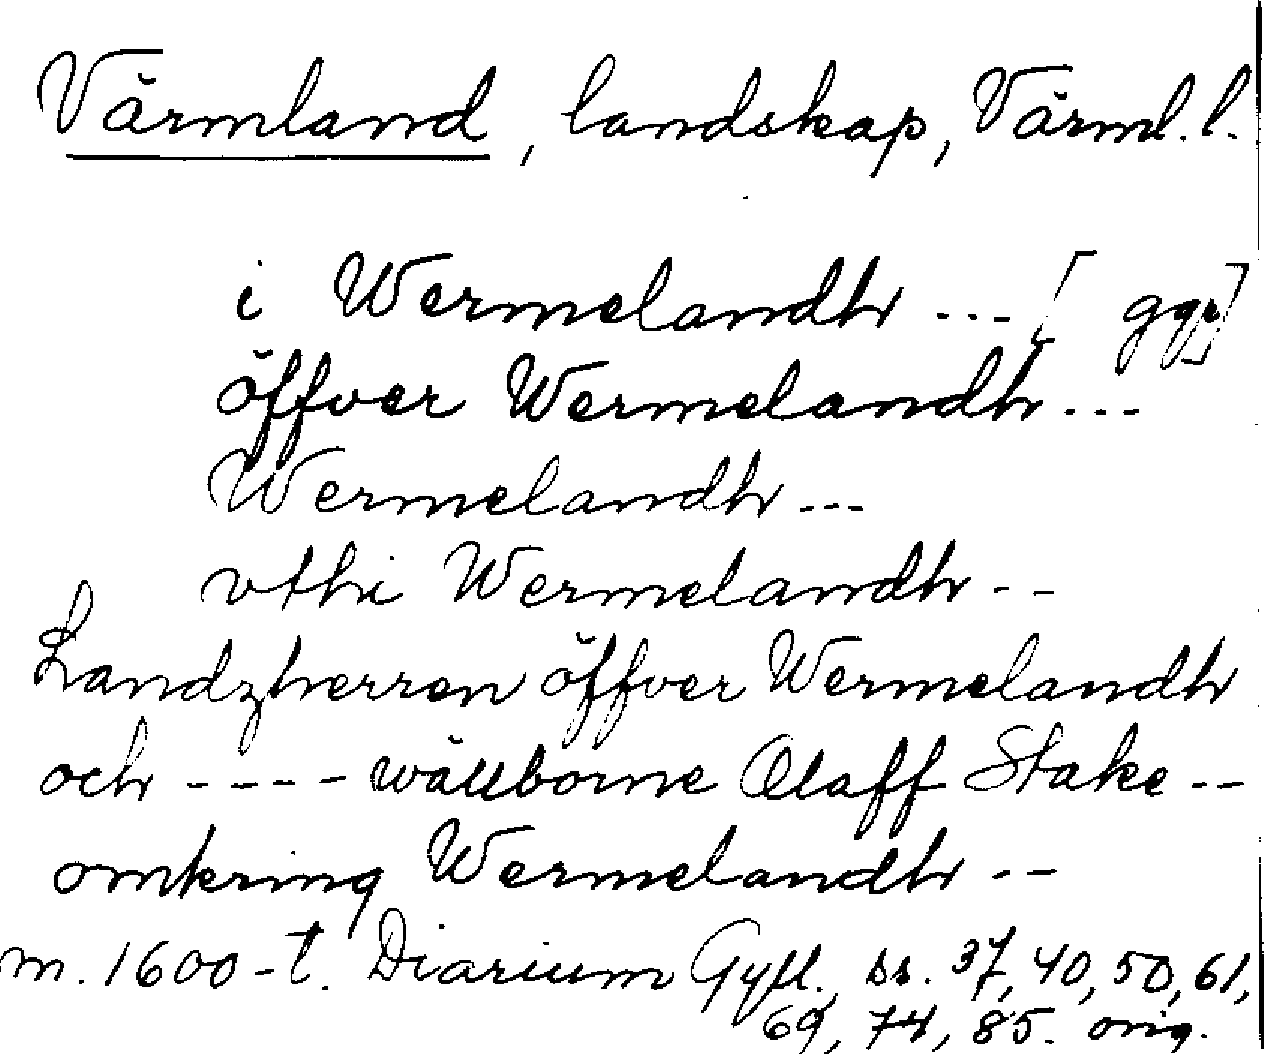 Värmland, landskap, Värml. l.
i Wermelandh ... [ ggr]
öffver Wermelandh ...
Wermelandh ---
vthi Wermelandh --
Landzherren öffver Wermelandh
och ---- wällborne Olaff Stake --
omkring Wermelandh --
m. 1600-t. Diarium Gyll., ss. 37, 40, 50, 61,
69, 74, 85. orig.